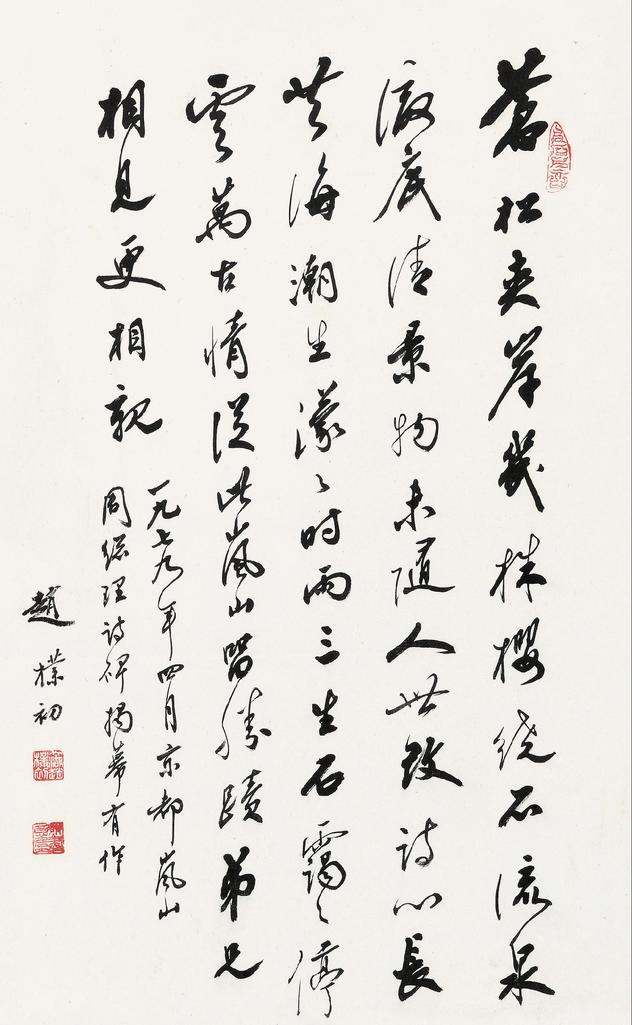 蒼松夾岸几株櫻绕石流泉
澈底清景物未随人世改诗心長
共海潮生濛々时雨三生石靄々停
雲萬古情从此嵐山留勝蹟弟兄
相見更相親
一九七九年四月京都嵐山
周总理诗碑揭幕有作
趙樸初